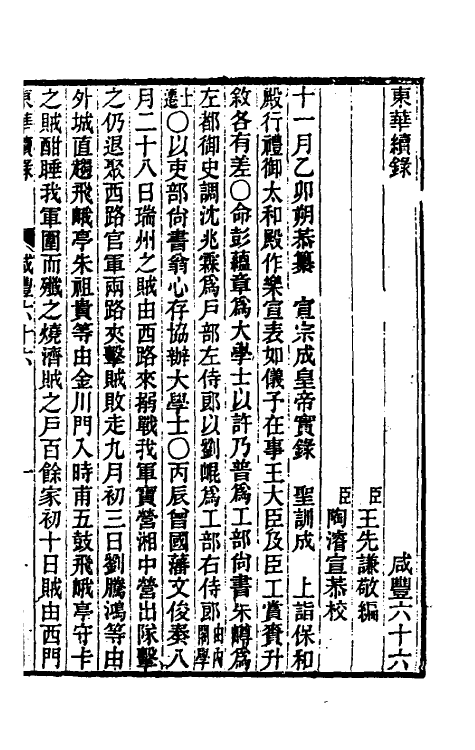 東華續錄　咸豐六十六
臣王先謙敬編
臣陶濬宣恭校
十一月乙卯朔恭纂　宣宗成皇帝實錄　聖訓成　上詣保和
殿行禮御太和殿作樂宣表如儀子在事王大臣及臣工賞賚升
敘各有差○命彭蘊章為大學士以許乃普為工部尚書朱嶟為
左都御史調沈兆霖為戶部左侍郎以劉崐為工部右侍郎由內閣學
士遷○以吏部尚書翁心存協辦大學士○丙辰曾國藩文俊奏八
月二十八日瑞州之賊由西路來搦戰我軍寶營湘中營出隊擊
之仍退聚西路官軍兩路夾擊賊敗走九月初三日劉騰鴻等由
外城直趨飛峨亭朱祖貴等由金川門入時甫五鼓飛峨亭守卡
之賊酣睡我軍圍而殲之燒濟賊之戶百餘家初十日賊由西門
東華續錄　咸豐六十六　一